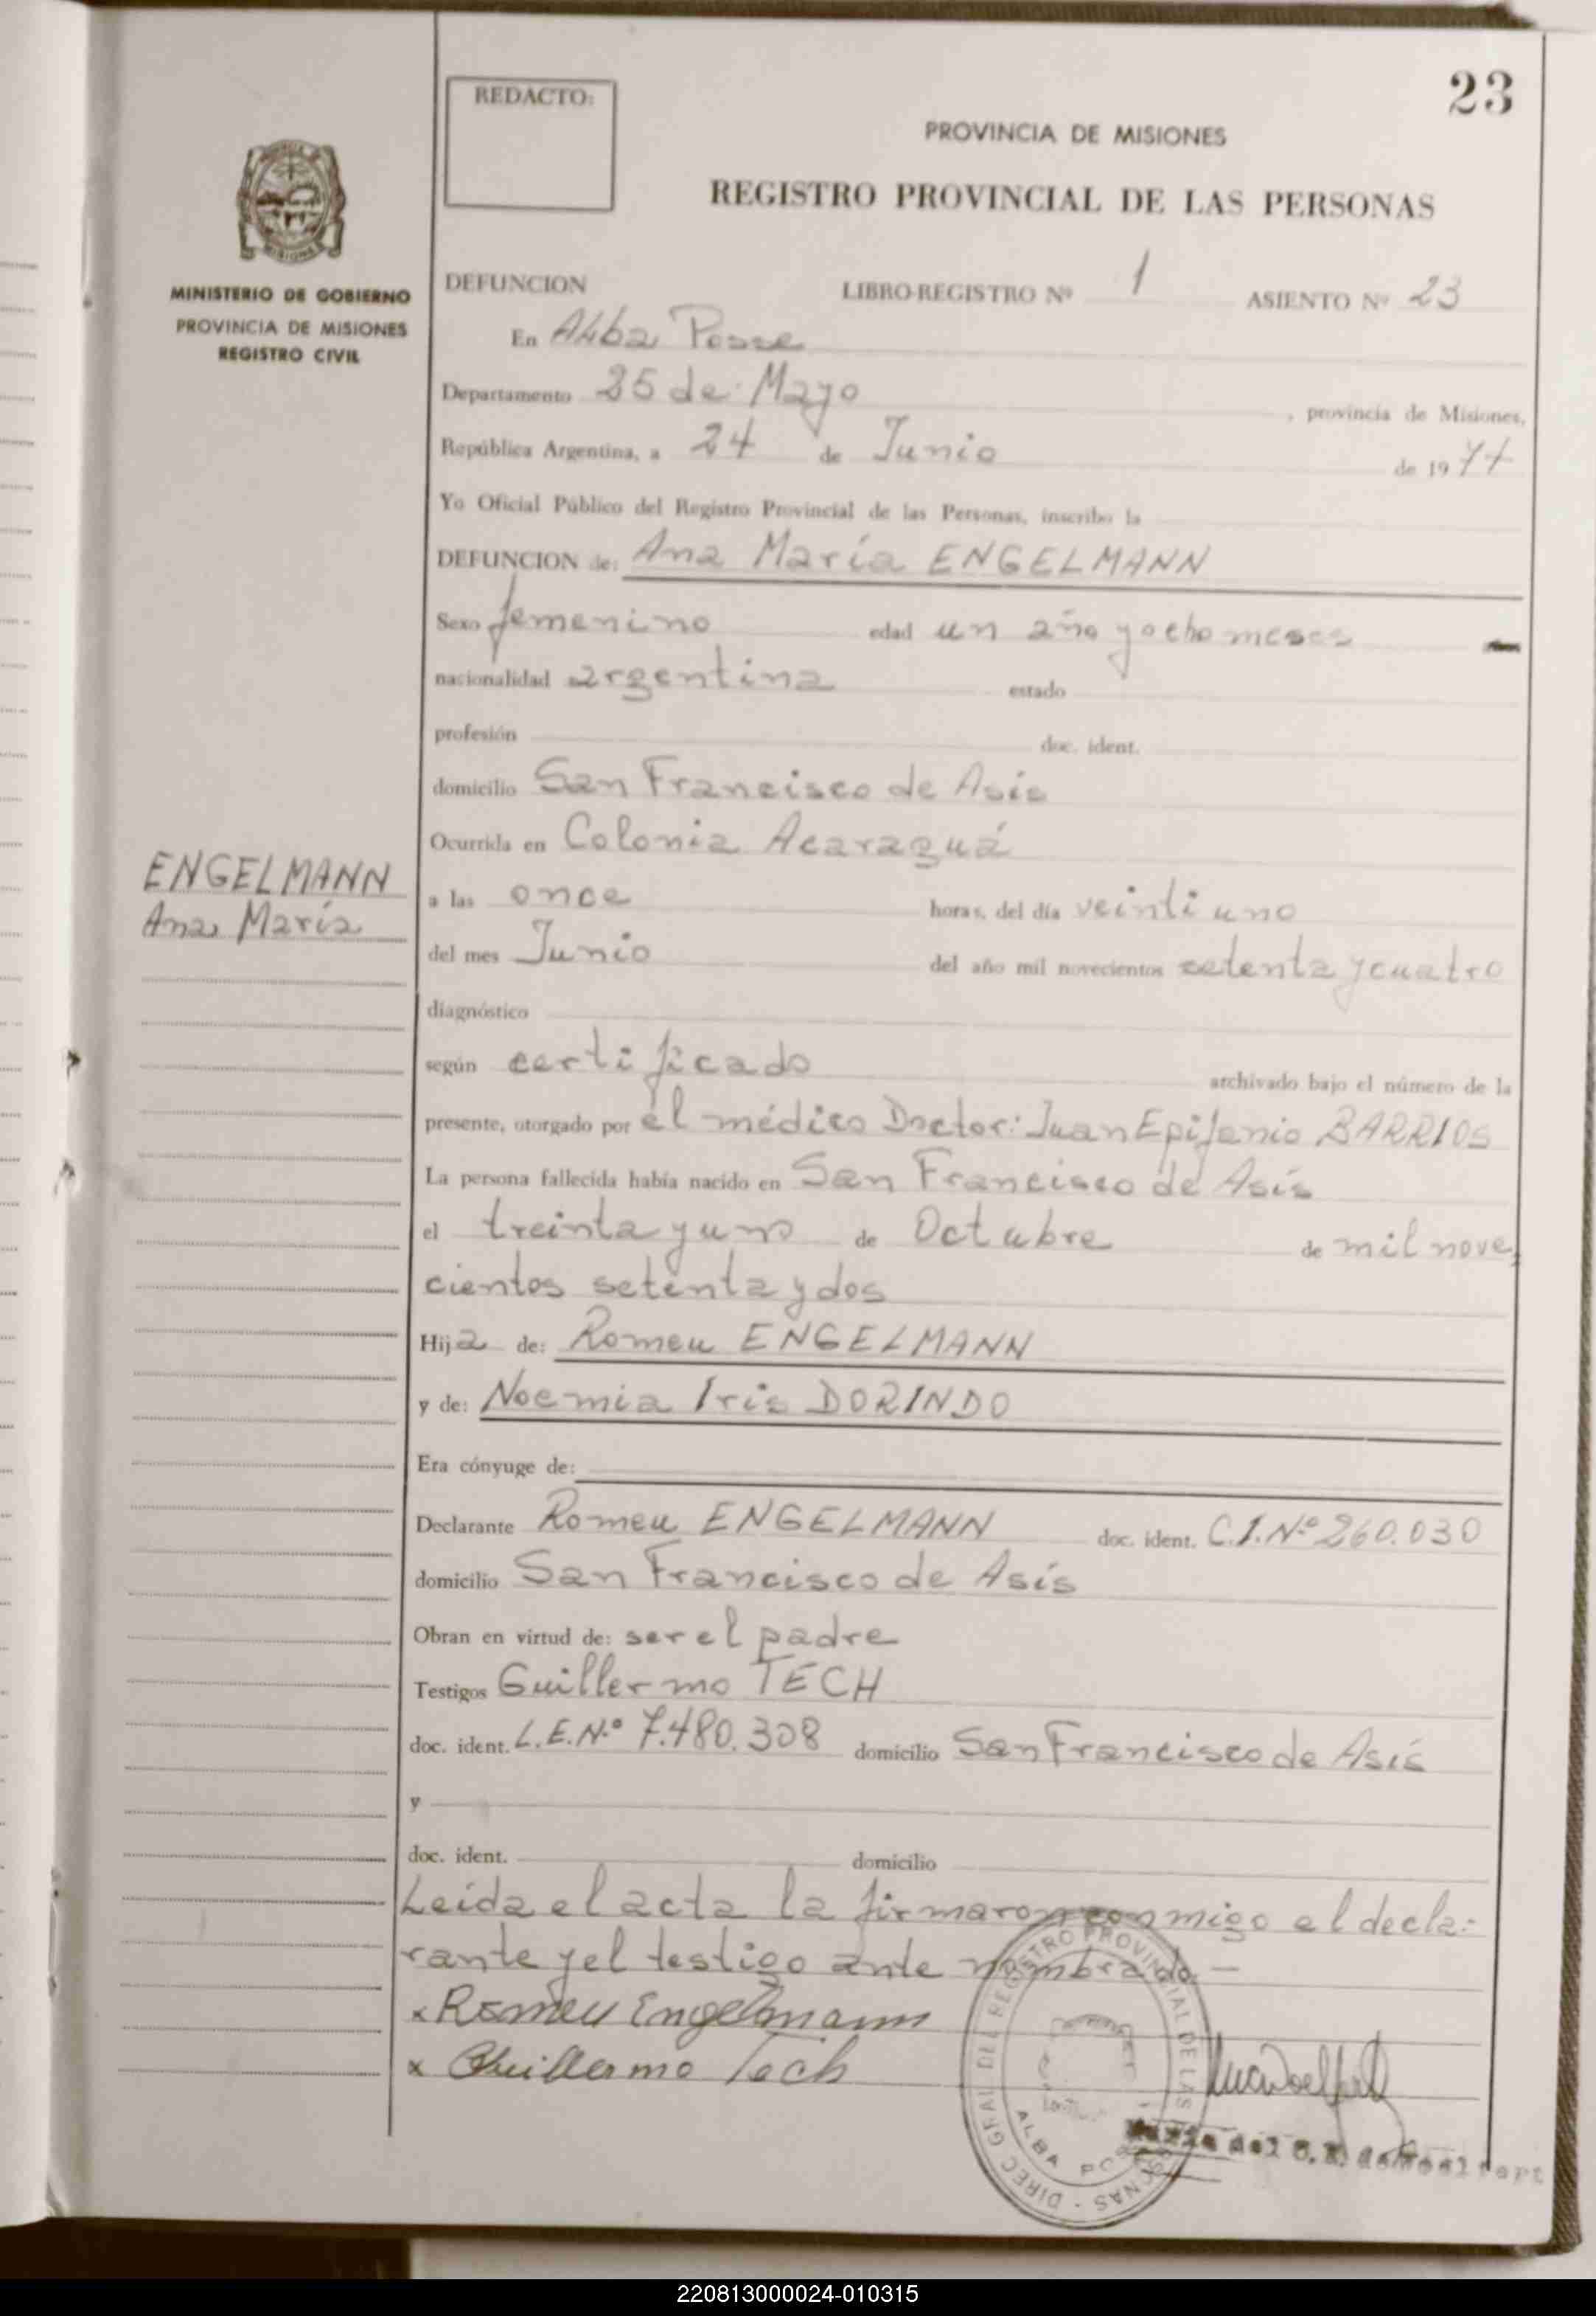 23
REDACTO:
PROVINCIA DE MISIONES
REGISTRO PROVINCIAL DE LAS PERSONAS
MINISTERIO DE GOBIERNO
PROVINCIA DE MISIONES
REGISTRO CIVIL
DEFUNCION LIBRO-REGISTRO Nº 1 ASIENTO Nº 23
En Alba Posse
Departamento 25 de Mayo, provincia de Misiones,
República Argentina, a 24 de Junio de 1974
Yo Oficial Público del Registro Provincial de las Personas, inscribo la
DEFUNCION de: Ana María ENGELMANN
Sexo femenino edad un año y ocho meses
nacionalidad argentina estado
profesión doc. ident.
domicilio San Francisco de Asís
Ocurrida en Colonia Acaraguá
ENGELMANN
Ana María
a las once horas, del día veintiuno
del mes Junio del año mil novecientos setenta y cuatro
diagnóstico
según certificado archivado bajo el número de la
presente, otorgado por el médico Doctor: Juan Epifanio BARRIOS
La persona fallecida había nacido en San Francisco de Asís
el treinta y uno de Octubre de mil nove
cientos setenta y dos
Hija de: Romeu ENGELMANN
y de: Noemia Iris DORINDO
Era cónyuge de:
Declarante Romeu ENGELMANN doc. ident. C.I.Nº 260.030
domicilio San Francisco de Asís
Obran en virtud de: ser el padre
Testigos Guillermo TECH
doc. ident. L.E.N.º 7.480.308 domicilio San Francisco de Asís
y
doc. ident. domicilio
Leída el acta la firmaron conmigo el decla-
rante y el testigo ante nombrado.—
x Romeu Engelmann
x Guillermo Tech
DIREC GRAL DEL REGISTRO PROVINCIAL DE LAS PERSONAS
ALBA POSSE
220813000024-010315